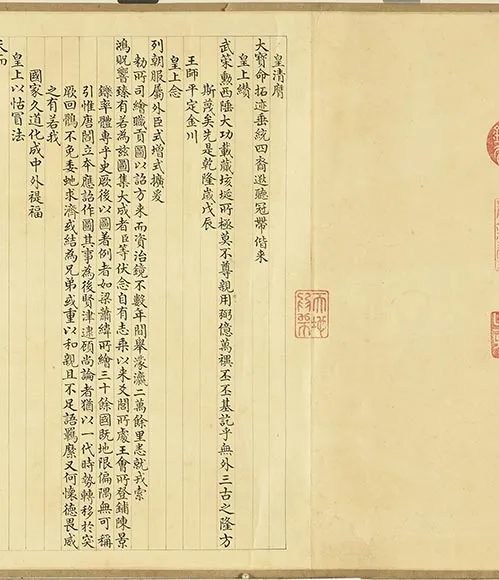 皇清膺
大寶命拓迹垂統四裔遐聽冠帶偕來
皇上纘
武策勳西陲大功載蕆垓埏所極莫不尊親用弼億萬禩丕丕基訖乎無外三古之隆方
斯蔑矣先是乾隆歲戊辰
王師平定金川
皇上念
列朝服屬外臣式增式擴爰
勅所司繪職貢圖以詔方來而資治鏡不數年間舉濛瀛二萬餘里悉就戎索
鴻貺響臻有若為茲圖集大成者臣等伏念自有志乘以來爻閭所處王會所登鋪陳景
鑠率體專乎史厥後以圖著例者如梁蕭繹所繪三十餘國既地限偏隅無可稱
引惟唐閻立本應詔作圖其事為後賢津逮顧尚論者猶以一代時勢轉移於突
厥回鶻不免委虵求濟或結為兄弟或重以和親且不足語羈縻又何懷德畏威
之有若我
國家久道化成中外禔福
皇上以怙冒法
天而